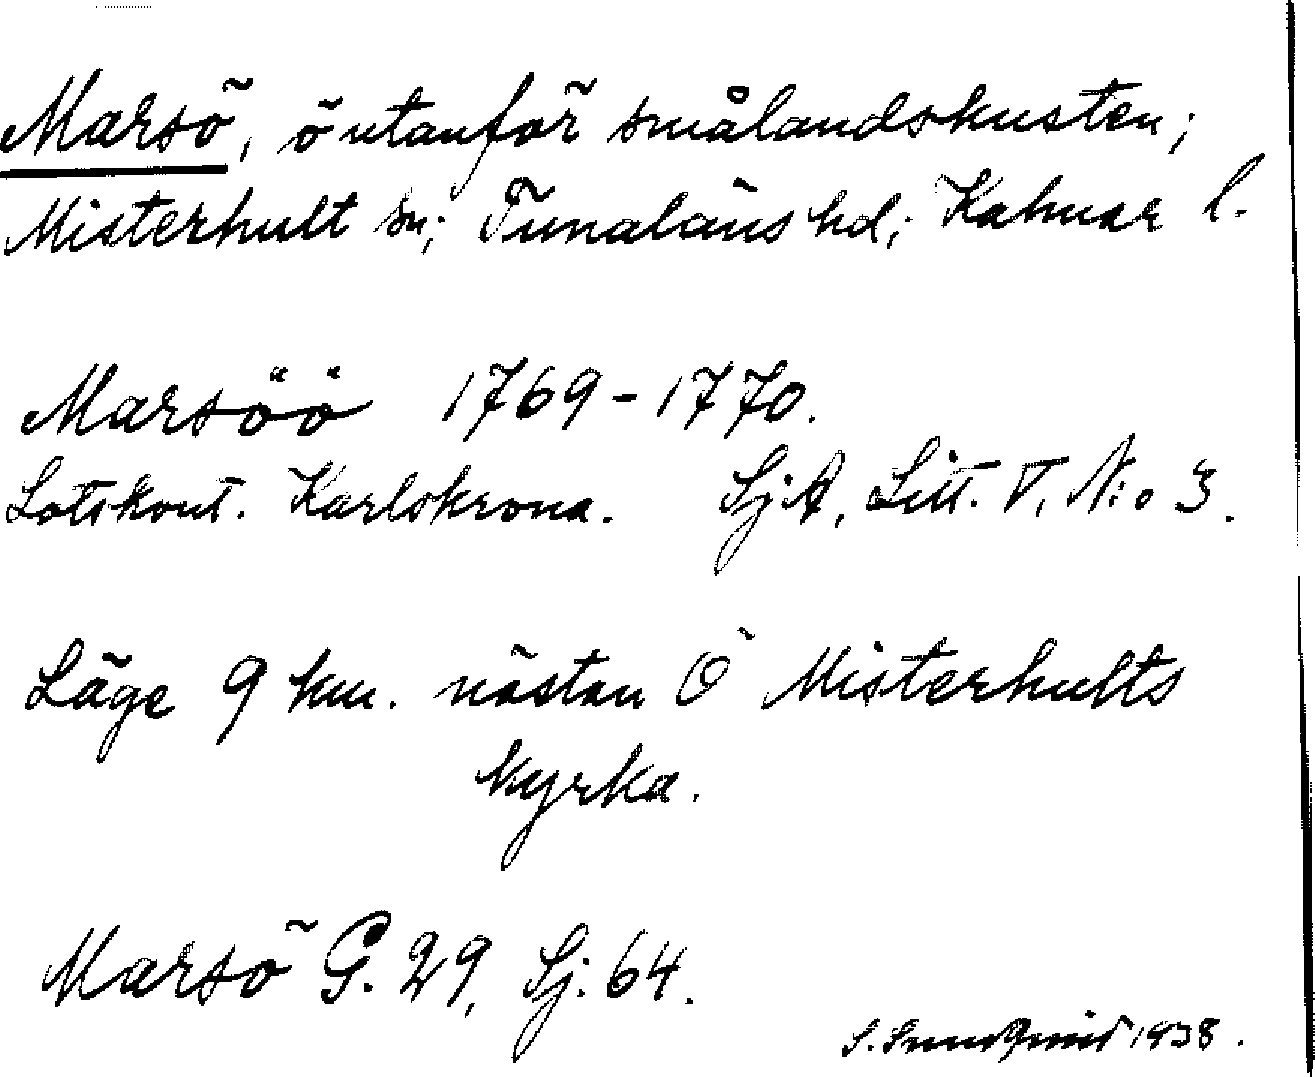 Marsö, ö utanför smålandskusten;
Misterhult sn; Tunaläns hd; Kalmar l.
Marsöö 1769-1770.
Lotskont. Karlskrona. SjA, Litt. V, N:o 3.
Läge 9 km. nästan Ö Misterhults
kyrka.
Marsö G. 29, Sj. 64.
S. 1938.